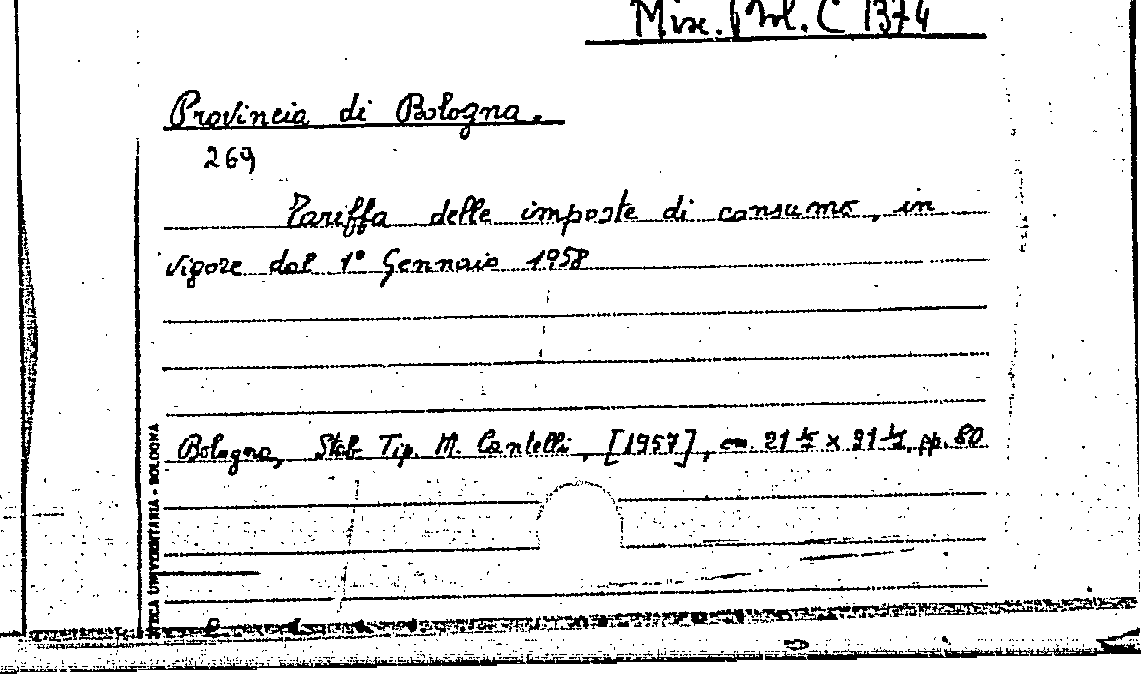 Misc. Bol. C 1374
Provincia di Bologna.
269
Tariffa delle imposte di consumo, in
vigore dal 1° Gennaio 1958
Bologna, Stab. Tip. M. Cantelli, [1957], cm. 21 ½ x 31 ½, pp. 80
TECA UNIVERSITARIA - BOLOGNA